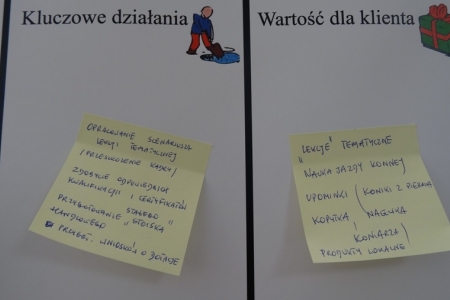 Kluczowe działania
OPRACOWANIE SCENARIUSZA
LEKCJI TEMATYCZNEJ
/PRZESZKOLENIE KADRY/
ZDOBYCIE ODPOWIEDNICH
KWALIFIKACJI I CERTYFIKATÓW
PRZYGOTOWANIE STAŁEGO "STOISKA
HANDLOWEGO"
PRZYGOT. WNIOSKÓW O DOTACJE
Wartość dla klienta
"LEKCJE" TEMATYCZNE
NAUKA JAZDY KONNEJ
UPOMINKI (KONIKI Z
KOPYTKA, NAUCZKA
KONIARZA)
PRODUKTY LOKALNE